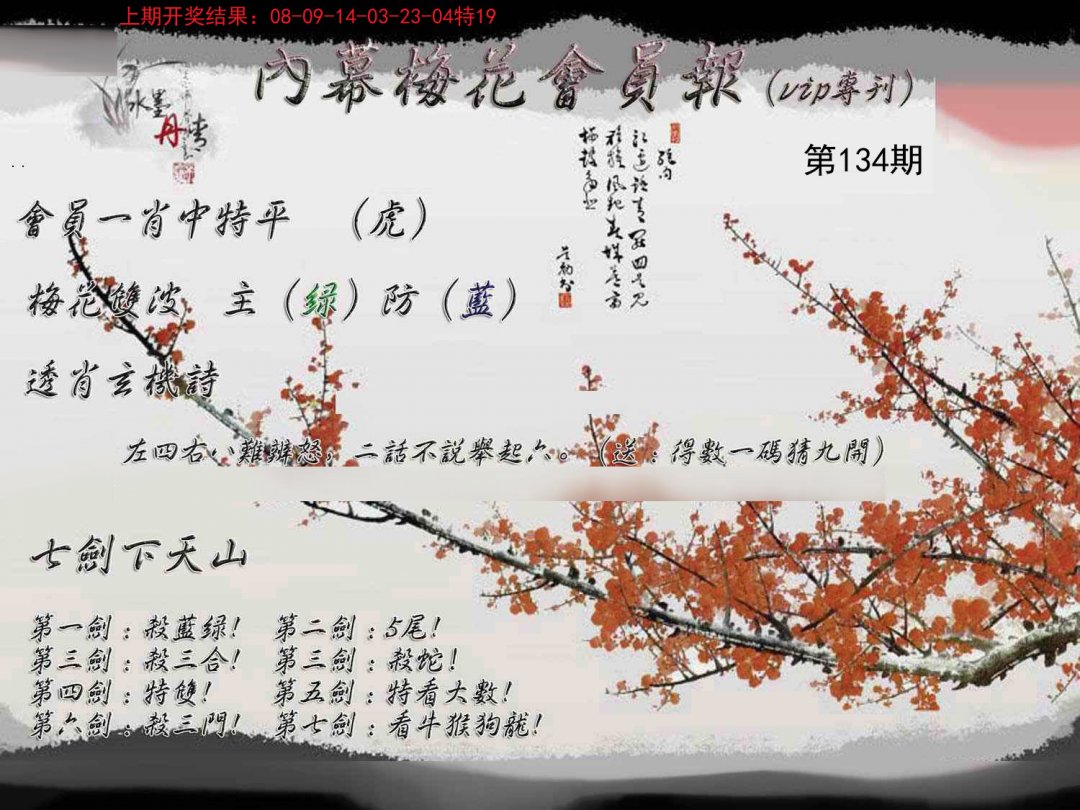 上期开奖结果：08-09-14-03-23-04特19
內幕梅花會員報（vip專刊）
水墨
丹青
第134期
會員一肖中特平 （虎）
梅花雙波 主（緑）防（藍）
透肖玄機詩
左四右八難辨怒，二話不説舉起六。（送：得數一碼猜九開）
七劍下天山
第一劍：殺藍緑！ 第二劍：5尾！
第三劍：殺三合！ 第三劍：殺蛇！
第四劍：特雙！ 第五劍：特看大數！
第六劍：殺三門！ 第七劍：看牛猴狗龍！